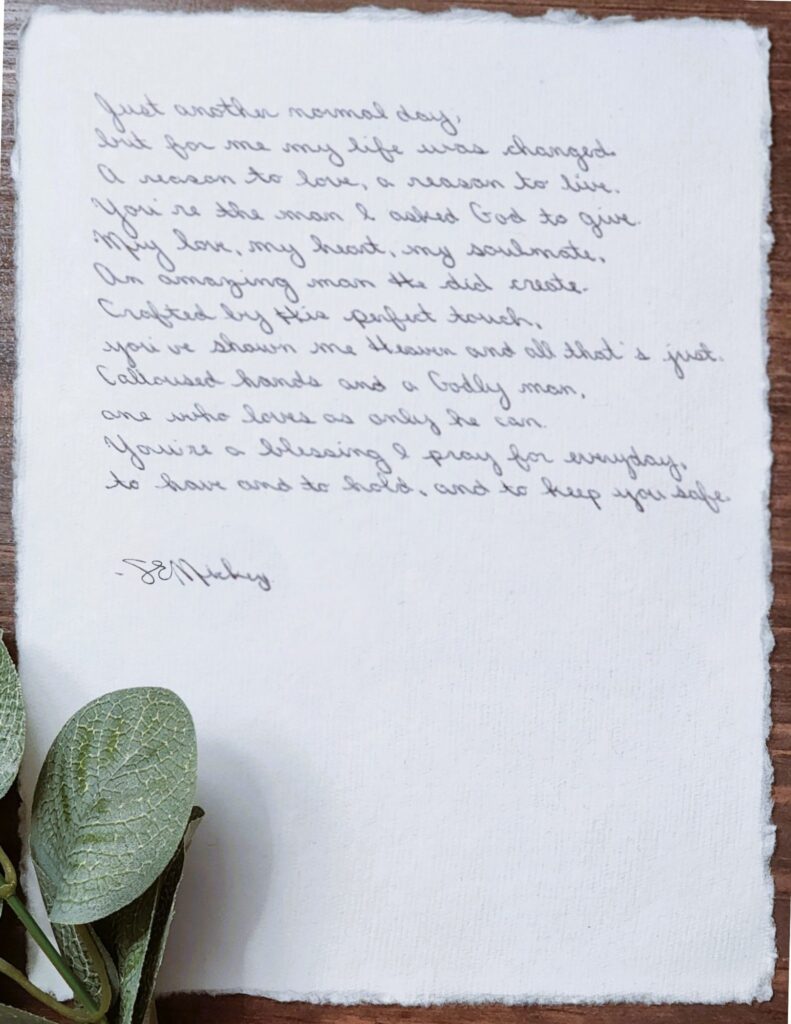 Just another normal day,
but for me my life was changed.
A reason to love, a reason to live.
You're the man I asked God to give.
My love, my heart, my soulmate,
An amazing man He did create.
Crafted by His perfect touch,
you've shown me Heaven and all that's just.
Calloused hands and a Godly man,
one who loves as only he can.
You're a blessing I pray for everyday,
to have and to hold, and to keep you safe.